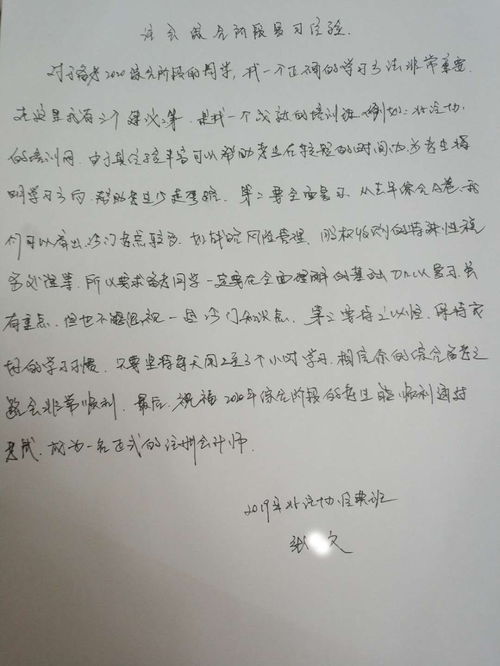 注会综合阶段复习经验
对于备考2020综合阶段的同学,找一个正确的学习方法非常重要
在这里我有三个建议:第一是找一个成熟的培训班,例如:北注协
的培训网。由于其经验丰富可以帮助考生在较短的时间内为考生指
明学习方向,帮助考生少走弯路。第二要全面复习,从去年综合A卷,我
们可以看出冷门考点较多,如战略风险管理、股权收购的特殊性税
务处理等。所以要求备考同学一定要在全面理解的基础上加以复习,虽
有重点,但也不能忽视一些冷门知识点。第三要持之以恒,保持良
好的学习习惯,只要坚持每天用2至3个小时学习,相信你的综合备考之
路会非常顺利。最后,祝福2020年综合阶段的考生能顺利通过
考试,成为一名正式的注册会计师。
2019年北注协经典班
张 文